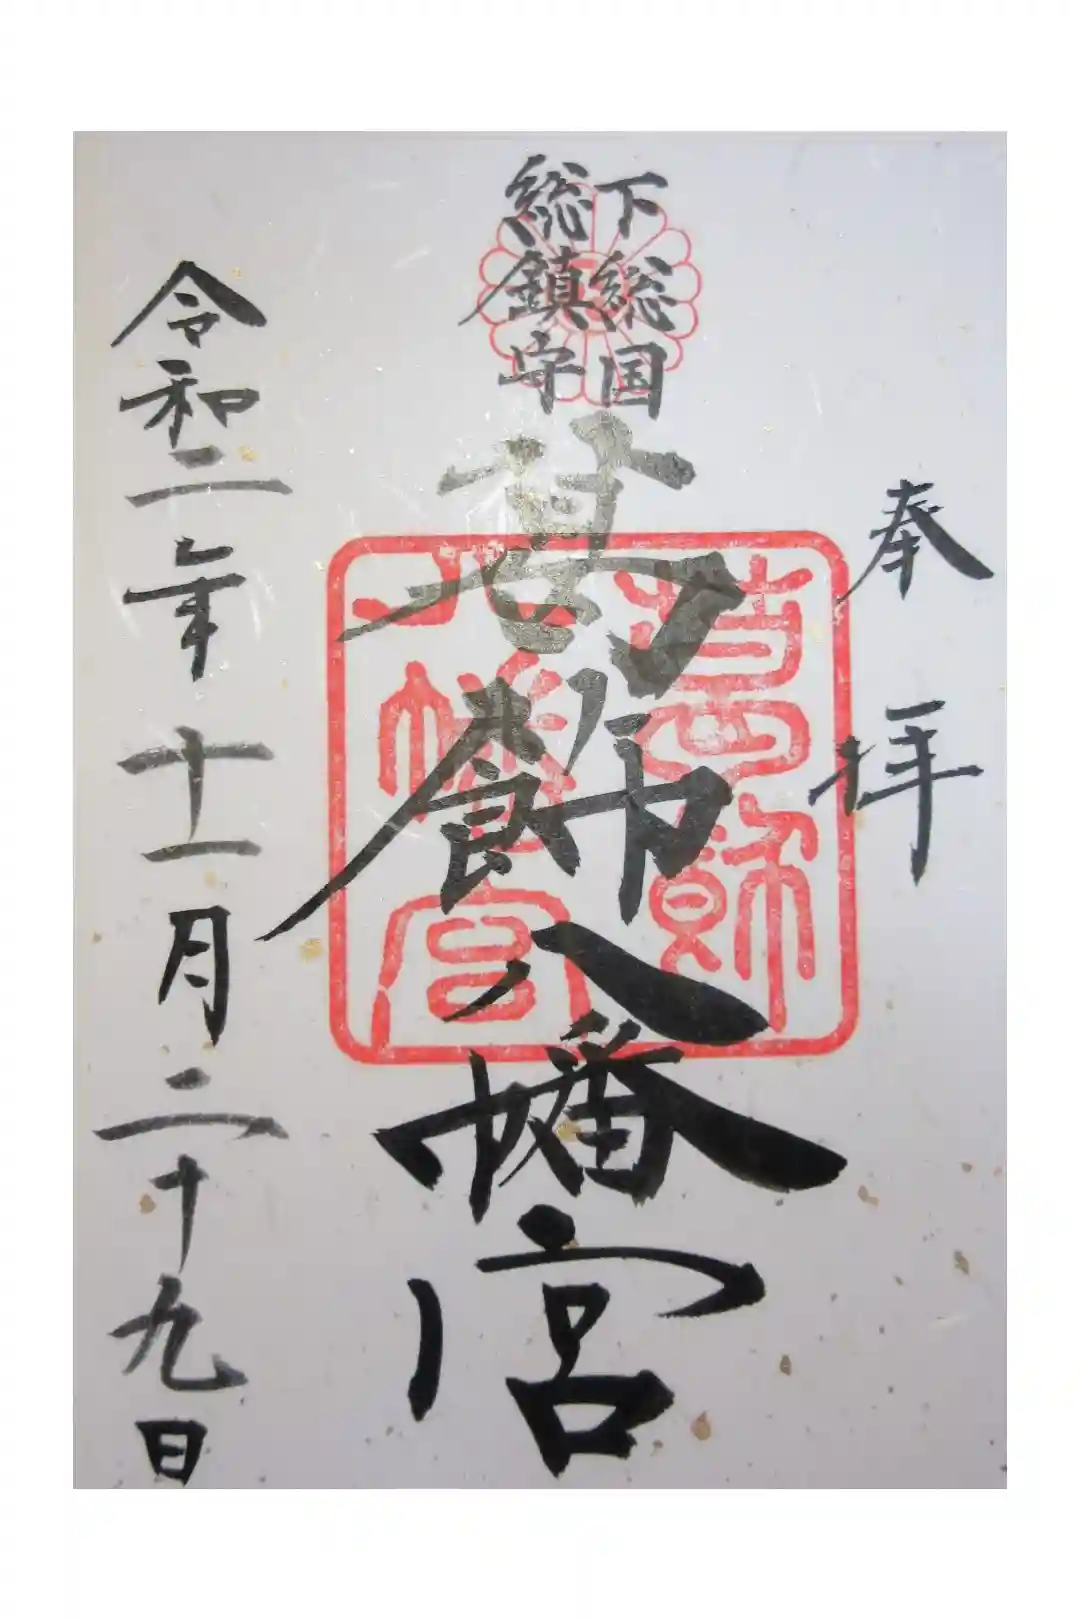 奉拝
下総国
総鎮守
葛飾八幡宮
葛飾
八幡宮
令和二年十一月二十九日